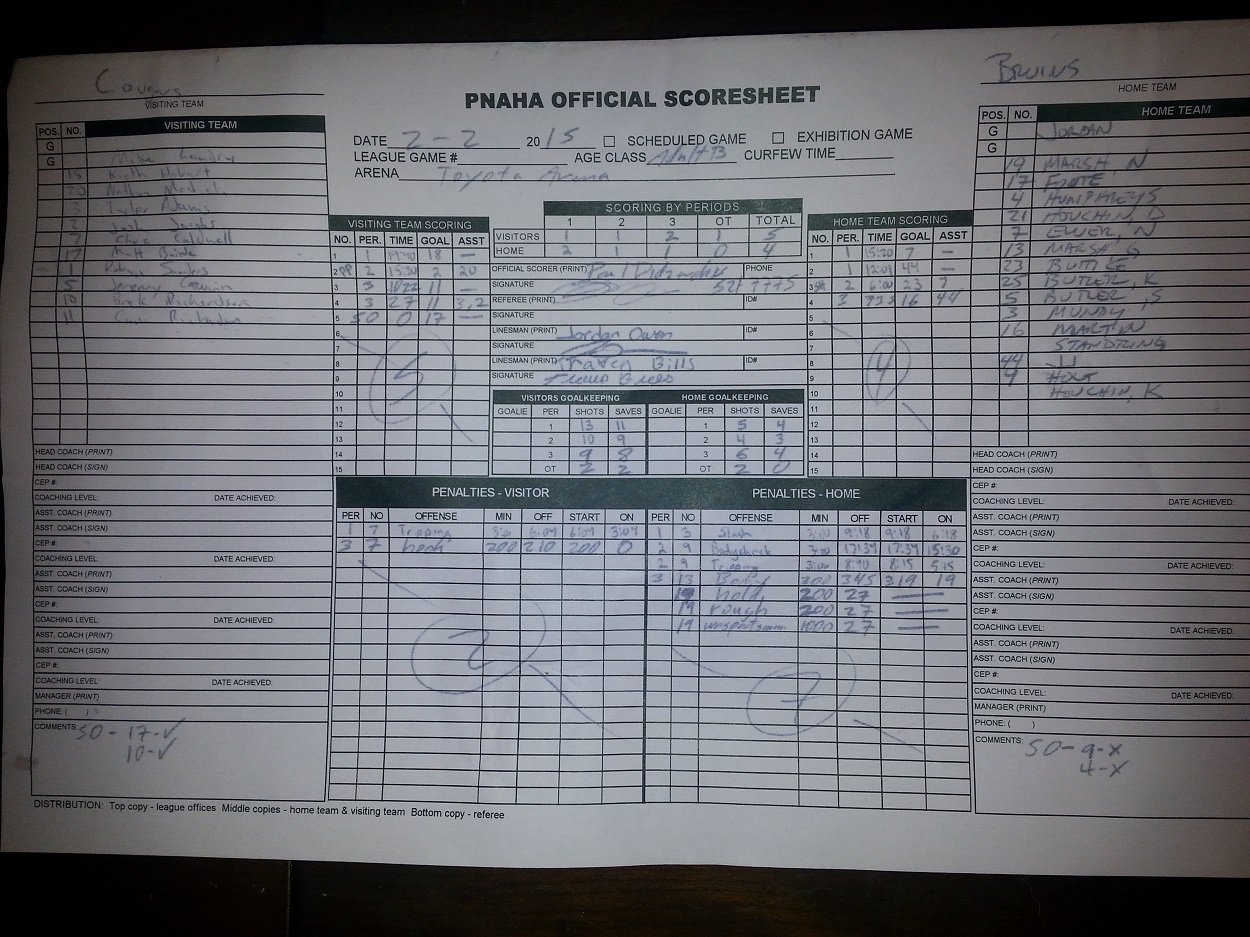 Cougars
VISITING TEAM
PNAHA OFFICIAL SCORESHEET
BRUINS
HOME TEAM
DATE 2-2 2015 SCHEDULED GAME EXHIBITION GAME
LEAGUE GAME # AGE CLASS Adult B CURFEW TIME
ARENA Toyota Arena
POS. NO. VISITING TEAM
G
G Mike Landry
Keith
20 Nathan
3 Tyler Adams
2 Josh Jacobs
7 Chaz Caldwell
17 Matt
1 Robyn Sanders
5 Jeremy
10 Brek Richardson
11
HEAD COACH (PRINT)
HEAD COACH (SIGN)
CEP #:
COACHING LEVEL: DATE ACHIEVED:
ASST. COACH (PRINT)
ASST. COACH (SIGN)
CEP #:
COACHING LEVEL: DATE ACHIEVED:
ASST. COACH (PRINT)
ASST. COACH (SIGN)
CEP #:
COACHING LEVEL: DATE ACHIEVED:
ASST. COACH (PRINT)
ASST. COACH (SIGN)
CEP #:
COACHING LEVEL: DATE ACHIEVED:
MANAGER (PRINT)
PHONE: ( )
COMMENTS: SO - 17-✓
10-✓
VISITING TEAM SCORING
NO. PER. TIME GOAL ASST
1 1 19:40 18 —
2 PP 2 15:30 2 20
3 3 11 —
4 3 27 11 3,2
5 SO 0 17 —
6
7
8
9
10
11
12
13
14
15
5
SCORING BY PERIODS
1 2 3 OT TOTAL
VISITORS 1 1 2 1 5
HOME 2 1 1 0 4
OFFICIAL SCORER (PRINT) Paul PHONE
SIGNATURE 521 7775
REFEREE (PRINT) ID#
SIGNATURE
LINESMAN (PRINT) Jordan Owen ID#
SIGNATURE
LINESMAN (PRINT) Traven Bills ID#
SIGNATURE
VISITORS GOALKEEPING HOME GOALKEEPING
GOALIE PER SHOTS SAVES GOALIE PER SHOTS SAVES
1 13 11 1 5 4
2 10 9 2 4 3
3 9 8 3 6 4
OT 2 2 OT 2 0
HOME TEAM SCORING
NO. PER. TIME GOAL ASST
1 1 15:20 7 —
2 1 12:01 44 —
3 2 6:00 23 7
4 3 738 16 44
5
6
7
8
9
10
11
12
13
14
15
4
PENALTIES - VISITOR
PER NO OFFENSE MIN OFF START ON
1 7 Tripping 3:00 6:04 6:04 3:04
3 7 hook 200 210 200 0
2
PENALTIES - HOME
PER NO OFFENSE MIN OFF START ON
1 3 Slash 3:00 9:18 9:18 6:18
2 9 Bodycheck 3:00 17:34 17:34 15:30
2 9 Tripping 3:00 8:15 5:15
3 13 Body 300 345 319 19
19 hold 200 27 —
19 rough 200 27 —
19 unsportsmn 1000 27 —
7
POS. NO. HOME TEAM
G JORDAN
G
19 MARSH, N
17 FOOTE
4 HUMPHREYS
21 HOUCHIN, D
7 EWER, N
13 MARSH, G
23 BUTTKE
25 BUTLER, K
5 BUTLER, S
3 MUNDY
16 MARTIN
STANDRING
44 JJ
9 HOLT
HOUCHIN, K
HEAD COACH (PRINT)
HEAD COACH (SIGN)
CEP #:
COACHING LEVEL: DATE ACHIEVED:
ASST. COACH (PRINT)
ASST. COACH (SIGN)
CEP #:
COACHING LEVEL: DATE ACHIEVED:
ASST. COACH (PRINT)
ASST. COACH (SIGN)
CEP #:
COACHING LEVEL: DATE ACHIEVED:
ASST. COACH (PRINT)
ASST. COACH (SIGN)
CEP #:
COACHING LEVEL: DATE ACHIEVED:
MANAGER (PRINT)
PHONE: ( )
COMMENTS: SO - 9-x
4-x
DISTRIBUTION: Top copy - league offices Middle copies - home team & visiting team Bottom copy - referee